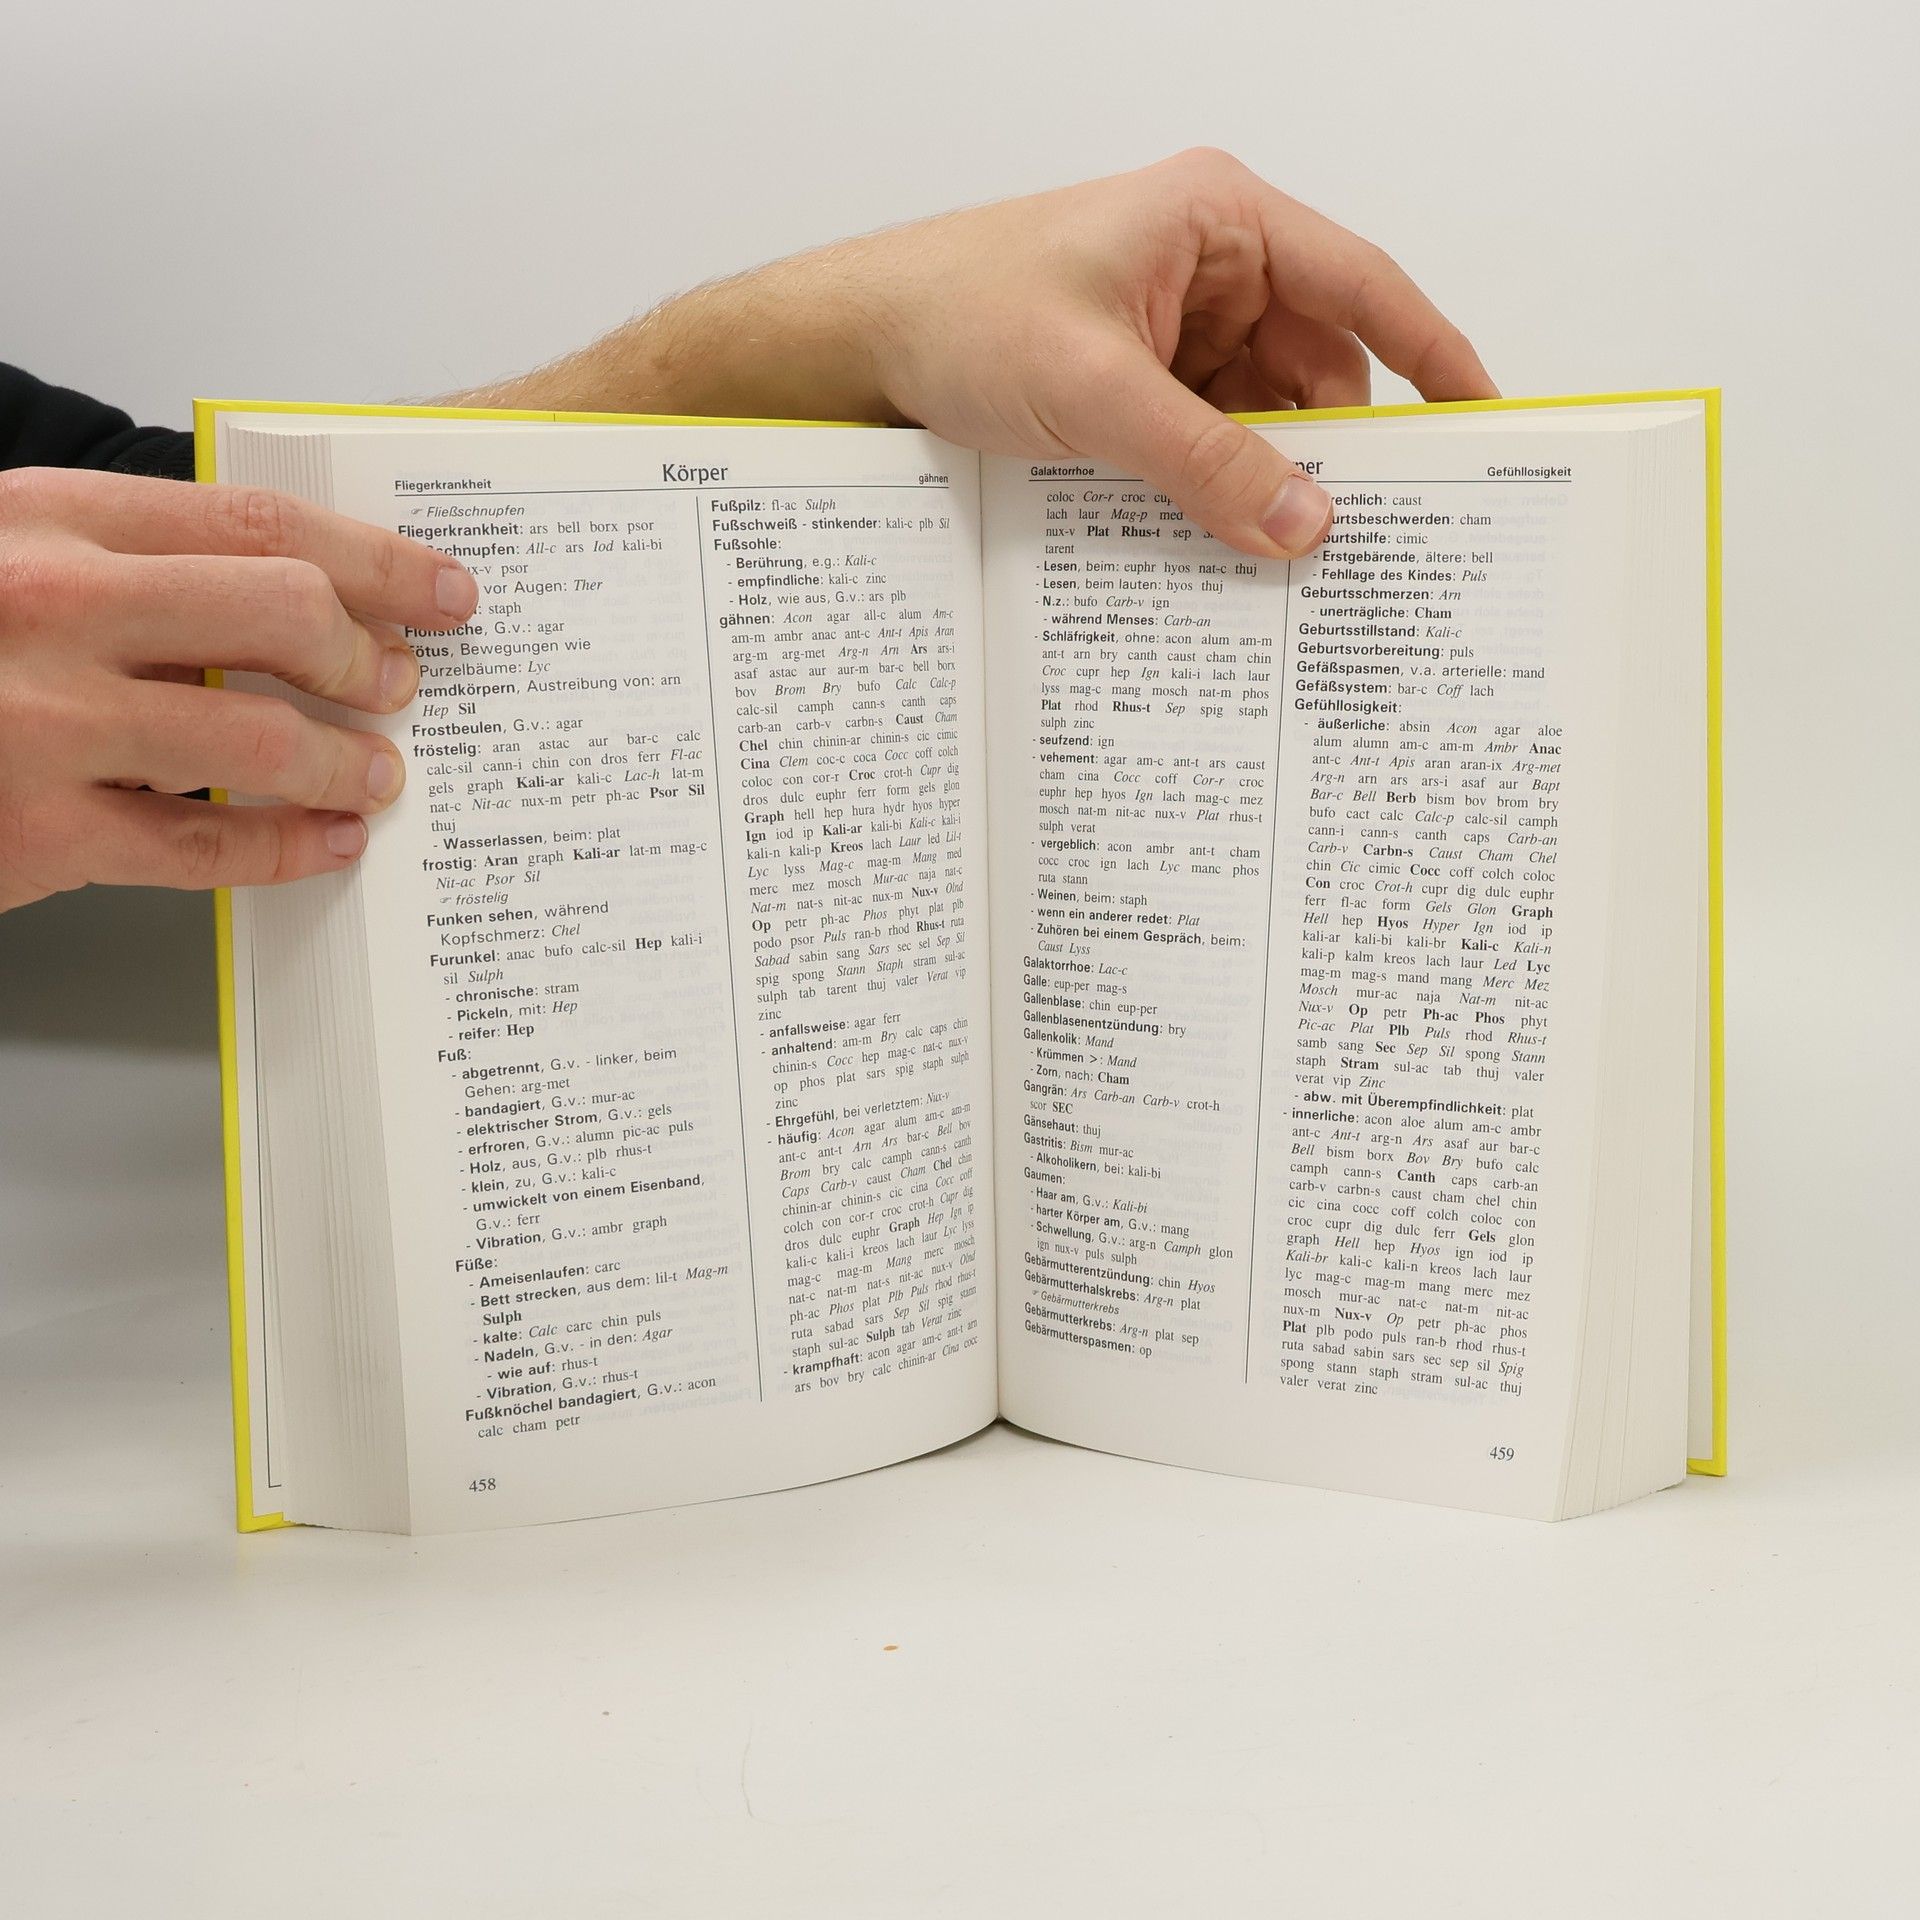 Fliegerkrankheit
Körper
gähnen
☞ Fließschnupfen
Fliegerkrankheit: ars bell borx psor
schnupfen: All-c ars Iod kali-bi
psor
vor Augen: Ther
staph
Flohstiche, G.v.: agar
Fötus, Bewegungen wie
Purzelbäume: Lyc
remdkörpern, Austreibung von: arn
Hep Sil
Frostbeulen, G.v.: agar
fröstelig: aran astac aur bar-c calc
calc-sil cann-i chin con dros ferr Fl-ac
gels graph Kali-ar kali-c Lac-h lat-m
nat-c Nit-ac nux-m petr ph-ac Psor Sil
thuj
- Wasserlassen, beim: plat
frostig: Aran graph Kali-ar lat-m mag-c
Nit-ac Psor Sil
☞ fröstelig
Funken sehen, während
Kopfschmerz: Chel
Furunkel: anac bufo calc-sil Hep kali-i
sil Sulph
- chronische: stram
- Pickeln, mit: Hep
- reifer: Hep
Fuß:
- abgetrennt, G.v. - linker, beim
Gehen: arg-met
- bandagiert, G.v.: mur-ac
- elektrischer Strom, G.v.: gels
- erfroren, G.v.: alumn pic-ac puls
- Holz, aus, G.v.: plb rhus-t
- klein, zu, G.v.: kali-c
- umwickelt von einem Eisenband,
G.v.: ferr
- Vibration, G.v.: ambr graph
Füße:
- Ameisenlaufen: carc
- Bett strecken, aus dem: lil-t Mag-m
Sulph
- kalte: Calc carc chin puls
- Nadeln, G.v. - in den: Agar
- wie auf: rhus-t
- Vibration, G.v.: rhus-t
Fußknöchel bandagiert, G.v.: acon
calc cham petr
458
Fußpilz: fl-ac Sulph
Fußschweiß - stinkender: kali-c plb Sil
Fußsohle:
- Berührung, e.g.: Kali-c
- empfindliche: kali-c zinc
- Holz, wie aus, G.v.: ars plb
gähnen: Acon agar all-c alum Am-c
am-m ambr anac ant-c Ant-t Apis Aran
arg-m arg-met Arg-n Arn Ars ars-i
asaf astac aur aur-m bar-c bell borx
bov Brom Bry bufo Calc Calc-p
calc-sil camph cann-s canth caps
carb-an carb-v carbn-s Caust Cham
Chel chin chinin-ar chinin-s cic cimic
Cina Clem coc-c coca Cocc coff colch
coloc con cor-r Croc crot-h Cupr dig
dros dulc euphr ferr form gels glon
Graph hell hep hura hydr hyos hyper
Ign iod ip Kali-ar kali-bi Kali-c kali-i
kali-n kali-p Kreos lach Laur led Lil-t
Lyc lyss Mag-c mag-m Mang med
merc mez mosch Mur-ac naja nat-c
Nat-m nat-s nit-ac nux-m Nux-v Olnd
Op petr ph-ac Phos phyt plat plb
podo psor Puls ran-b rhod Rhus-t ruta
Sabad sabin sang Sars sec sel Sep Sil
spig spong Stann Staph stram sul-ac
sulph tab tarent thuj valer Verat vip
zinc
- anfallsweise: agar ferr
- anhaltend: am-m Bry calc caps chin
chinin-s Cocc hep mag-c nat-c nux-v
op phos plat sars spig staph sulph
zinc
- Ehrgefühl, bei verletztem: Nux-v
- häufig: Acon agar alum am-c am-m
ant-c ant-t Arn Ars bar-c Bell bov
Brom bry calc camph cann-s canth
Caps Carb-v caust Cham Chel chin
chinin-ar chinin-s cic cina Cocc coff
colch con cor-r croc crot-h Cupr dig
dros dulc euphr Graph Hep Ign ip
kali-c kali-i kreos lach laur Lyc lyss
mag-c mag-m Mang merc mosch
nat-c nat-m nat-s nit-ac nux-v Olnd
ph-ac Phos plat Plb Puls rhod rhus-t
ruta sabad sars Sep Sil spig stann
staph sul-ac Sulph tab Verat zinc
- krampfhaft: acon agar am-c ant-t arn
ars bov bry calc chinin-ar Cina cocc
Galaktorrhoe
per
Gefühllosigkeit
coloc Cor-r croc
lach laur Mag-p med
nux-v Plat Rhus-t sep
tarent
- Lesen, beim: euphr hyos nat-c thuj
- Lesen, beim lauten: hyos thuj
- N.z.: bufo Carb-v ign
- während Menses: Carb-an
- Schläfrigkeit, ohne: acon alum am-m
ant-t arn bry canth caust cham chin
Croc cupr hep Ign kali-i lach laur
lyss mag-c mang mosch nat-m phos
Plat rhod Rhus-t Sep spig staph
sulph zinc
- seufzend: ign
- vehement: agar am-c ant-t ars caust
cham cina Cocc coff Cor-r croc
euphr hep hyos Ign lach mag-c mez
mosch nat-m nit-ac nux-v Plat rhus-t
sulph verat
- vergeblich: acon ambr ant-t cham
cocc croc ign lach Lyc manc phos
ruta stann
- Weinen, beim: staph
- wenn ein anderer redet: Plat
- Zuhören bei einem Gespräch, beim:
Caust Lyss
Galaktorrhoe: Lac-c
Galle: eup-per mag-s
Gallenblase: chin eup-per
Gallenblasenentzündung: bry
Gallenkolik: Mand
- Krümmen >: Mand
- Zorn, nach: Cham
Gangrän: Ars Carb-an Carb-v crot-h
scor SEC
Gänsehaut: thuj
Gastritis: Bism mur-ac
- Alkoholikern, bei: kali-bi
Gaumen:
- Haar am, G.v.: Kali-bi
- harter Körper am, G.v.: mang
- Schwellung, G.v.: arg-n Camph glon
ign nux-v puls sulph
Gebärmutterentzündung: chin Hyos
Gebärmutterhalskrebs: Arg-n plat
☞ Gebärmutterkrebs
Gebärmutterkrebs: Arg-n plat sep
Gebärmutterspasmen: op
rechlich: caust
urtsbeschwerden: cham
burtshilfe: cimic
- Erstgebärende, ältere: bell
- Fehllage des Kindes: Puls
Geburtsschmerzen: Arn
- unerträgliche: Cham
Geburtsstillstand: Kali-c
Geburtsvorbereitung: puls
Gefäßspasmen, v.a. arterielle: mand
Gefäßsystem: bar-c Coff lach
Gefühllosigkeit:
- äußerliche: absin Acon agar aloe
alum alumn am-c am-m Ambr Anac
ant-c Ant-t Apis aran aran-ix Arg-met
Arg-n arn ars ars-i asaf aur Bapt
Bar-c Bell Berb bism bov brom bry
bufo cact calc Calc-p calc-sil camph
cann-i cann-s canth caps Carb-an
Carb-v Carbn-s Caust Cham Chel
chin Cic cimic Cocc coff colch coloc
Con croc Crot-h cupr dig dulc euphr
ferr fl-ac form Gels Glon Graph
Hell hep Hyos Hyper Ign iod ip
kali-ar kali-bi kali-br Kali-c Kali-n
kali-p kalm kreos lach laur Led Lyc
mag-m mag-s mand mang Merc Mez
Mosch mur-ac naja Nat-m nit-ac
Nux-v Op petr Ph-ac Phos phyt
Pic-ac Plat Plb Puls rhod Rhus-t
samb sang Sec Sep Sil spong Stann
staph Stram sul-ac tab thuj valer
verat vip Zinc
- abw. mit Überempfindlichkeit: plat
- innerliche: acon aloe alum am-c ambr
ant-c Ant-t arg-n Ars asaf aur bar-c
Bell bism borx Bov Bry bufo calc
camph cann-s Canth caps carb-an
carb-v carbn-s caust cham chel chin
cic cina cocc coff colch coloc con
croc cupr dig dulc ferr Gels glon
graph Hell hep Hyos ign iod ip
Kali-br kali-c kali-n kreos lach laur
lyc mag-c mag-m mang merc mez
mosch mur-ac nat-c nat-m nit-ac
nux-m Nux-v Op petr ph-ac phos
Plat plb podo puls ran-b rhod rhus-t
ruta sabad sabin sars sec sep sil Spig
spong stann staph stram sul-ac thuj
valer verat zinc
459